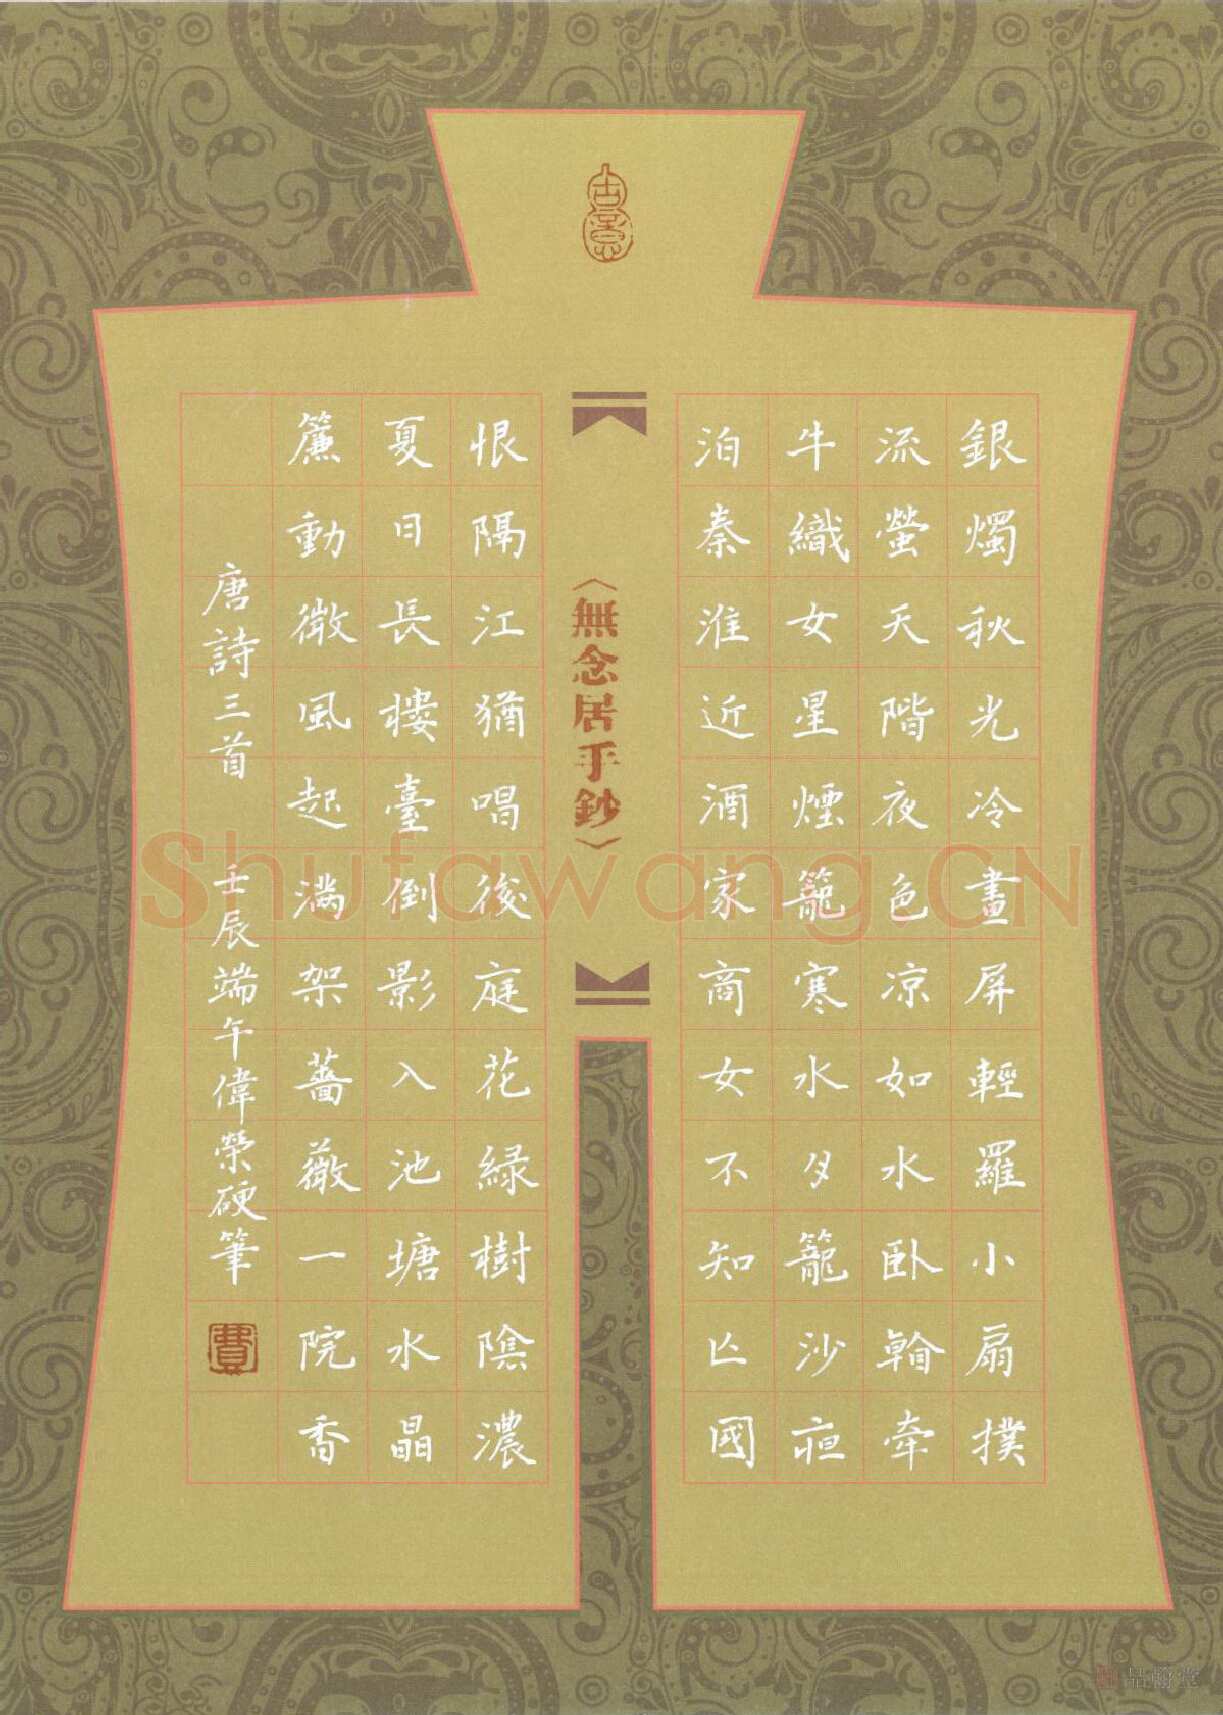 古意
銀燭秋光冷畫屏輕羅小扇撲
流螢天階夜色凉如水臥牽
牛織女星煙籠寒水月籠沙夜
泊秦淮近酒家商女不知亡國
〈無念居手鈔〉
恨隔江猶唱後庭花緑樹陰濃
夏日長樓臺倒影入池塘水晶
簾動微風起滿架薔薇一院香
唐詩三首 壬辰端午偉榮硬筆
費
Shufawang.CN
品翰堂